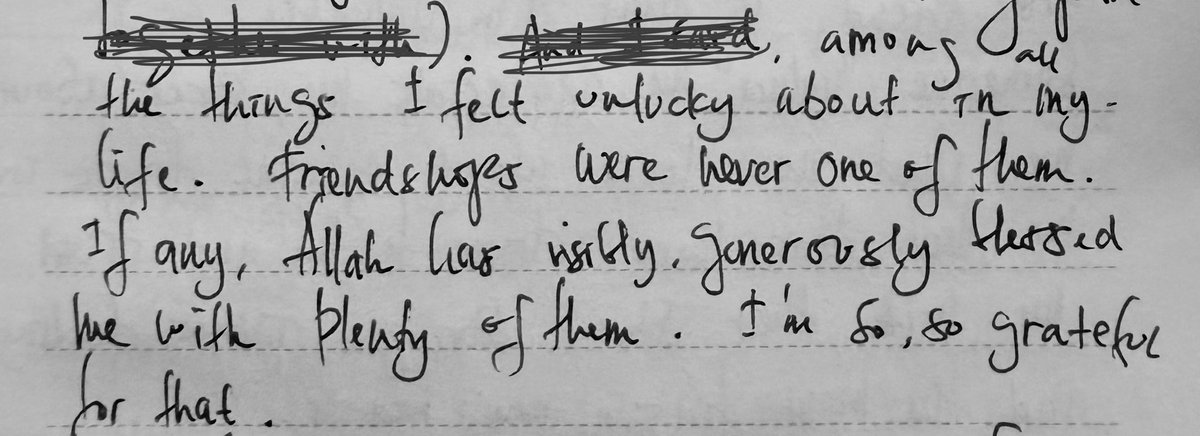 ). , among all
the things I felt unlucky about in my
life. Friendships were never one of them.
If any, Allah has visibly, generously blessed
me with plenty of them. I'm so, so grateful
for that.